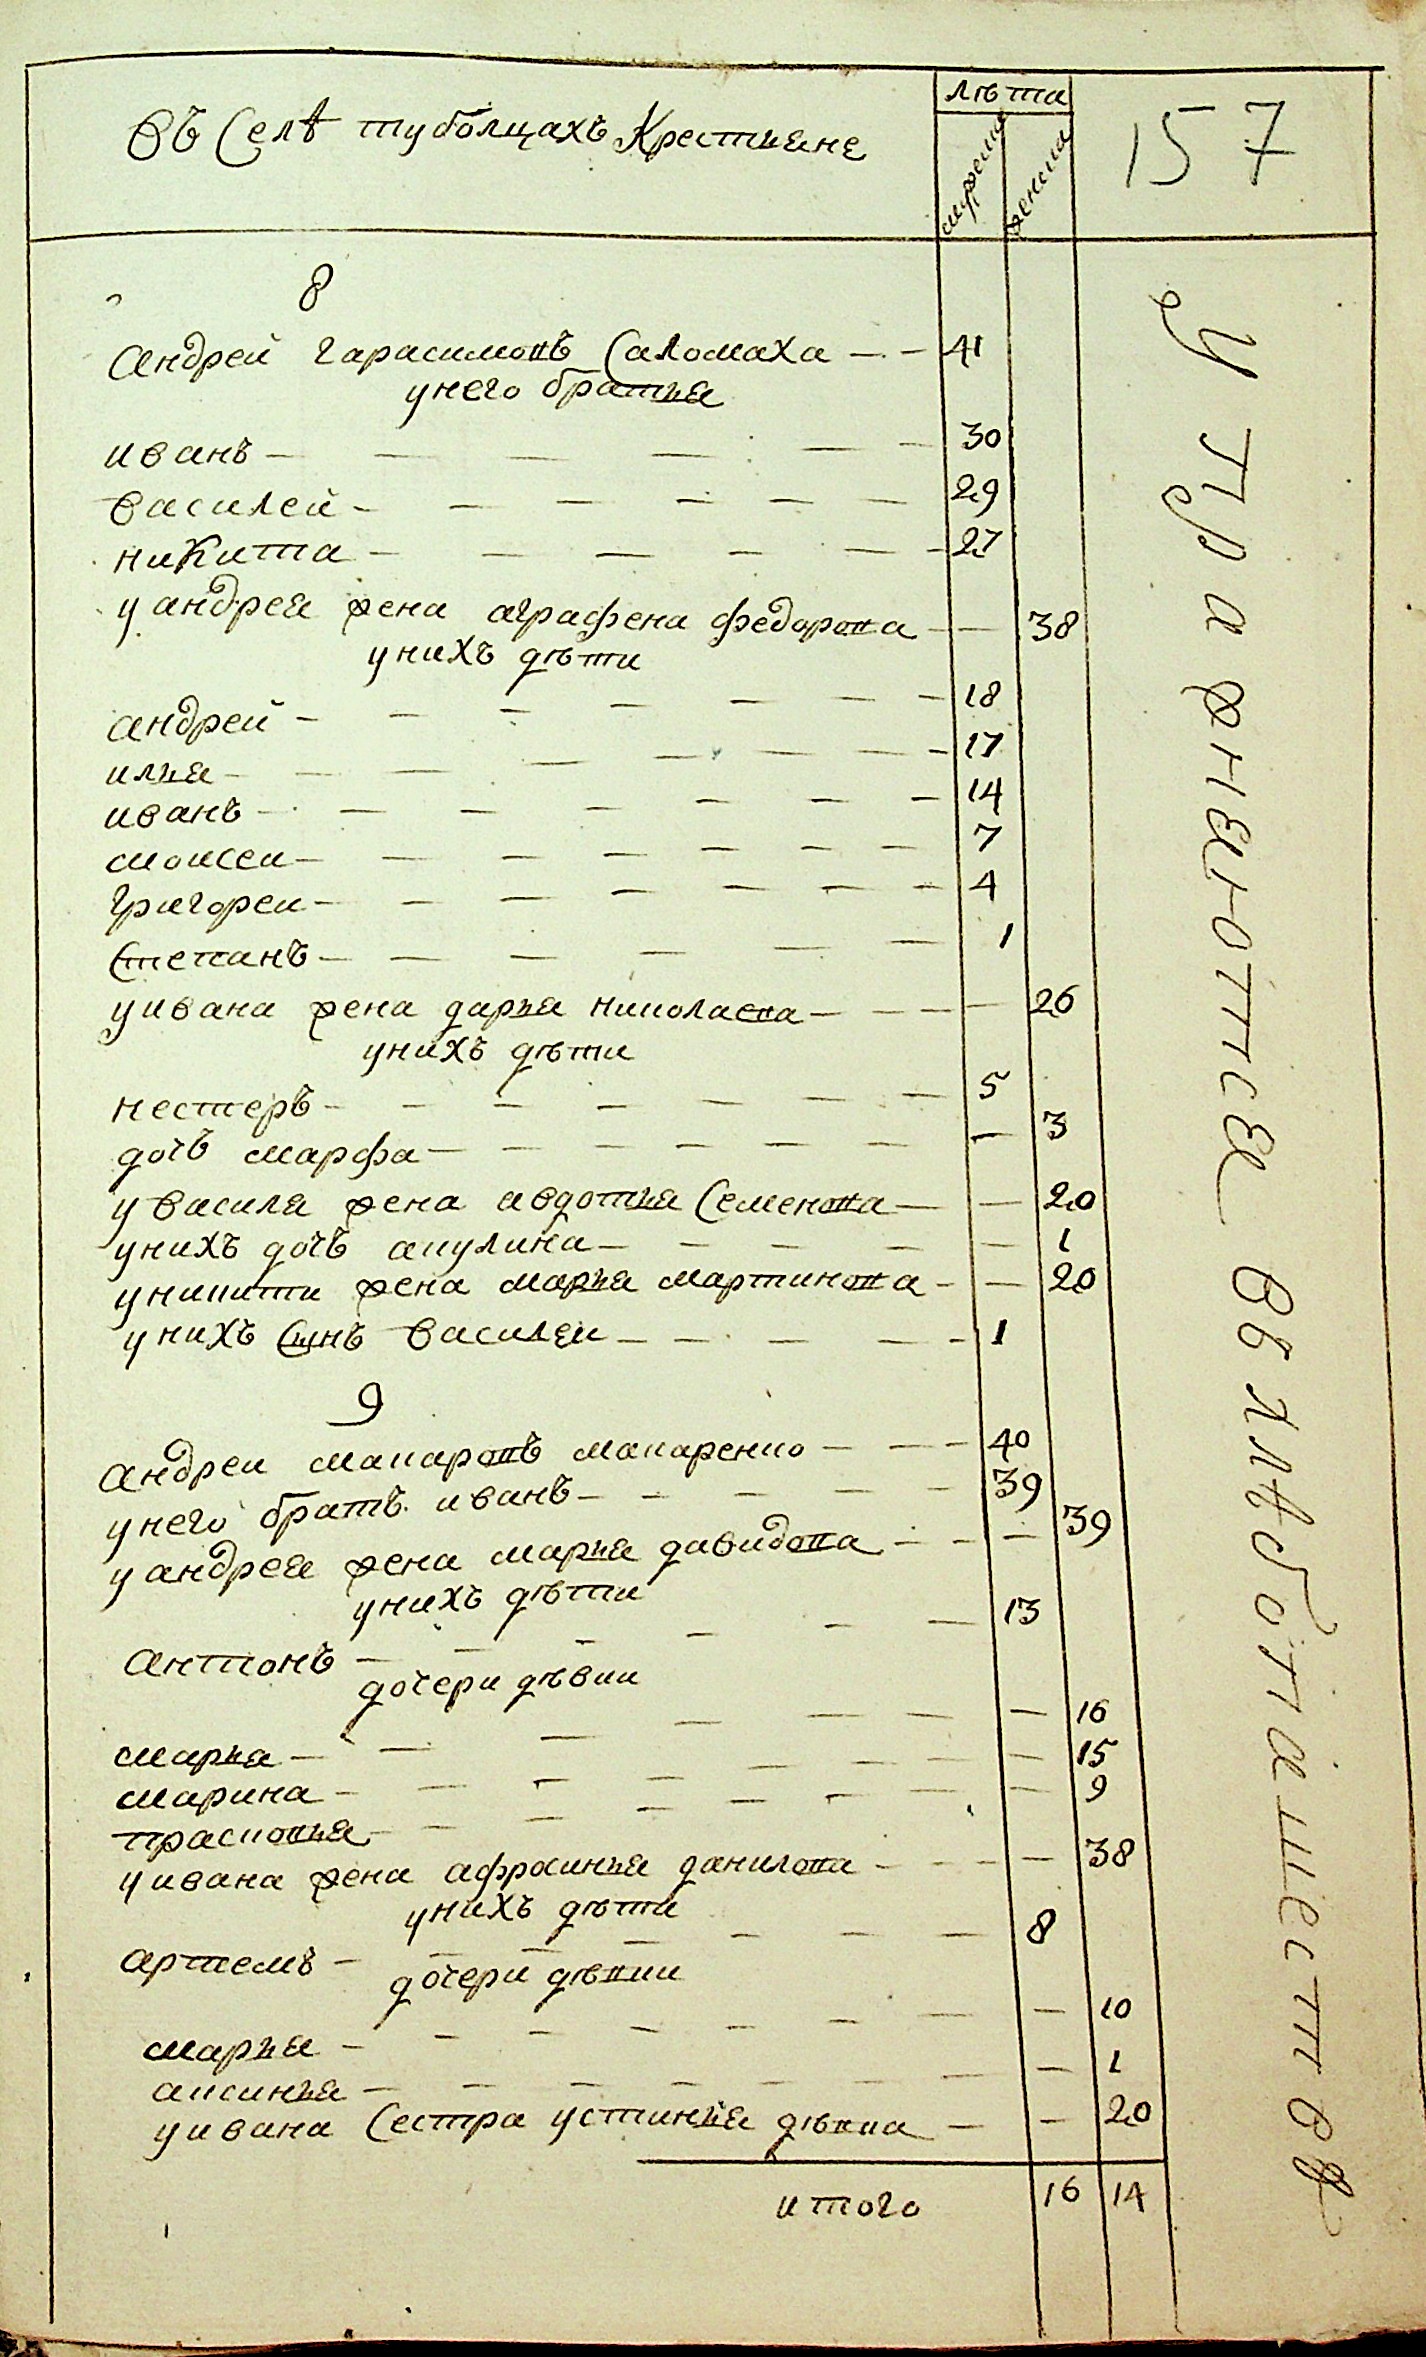 въ Селѣ туболцахъ Крестьяне
лѣта
мужска
женска
157
8
Андрей гарасимовъ Саломаха 41
унего братья
иванъ 30
василей 29
никита 27
у андрея жена аграфена федорова 38
унихъ дѣти
андрей 18
илья 17
иванъ 14
моисеи 7
григореи 4
Степанъ 1
уивана жена дарья николаева 26
унихъ дѣти
нестеръ 5
дочь марфа 3
у василя жена авдотья Семенова 20
унихъ дочь акулина 1
уникити жена марья мартинова 20
унихъ Сынъ василеи 1
9
андреи макаровъ макаренко 40
унего братъ иванъ 39
у андрея жена марья давидова 39
унихъ дѣти
антонъ 13
дочери дѣвки
марья 16
марина 15
прасковья 9
уивана жена афросинья данилова 38
унихъ дѣти
артемъ 8
дочери дѣвки
марья 10
аксинья 1
уивана Сестра устинья дѣвка 20
итого 16 14
Упражняются въ хлѣбопашествѣ